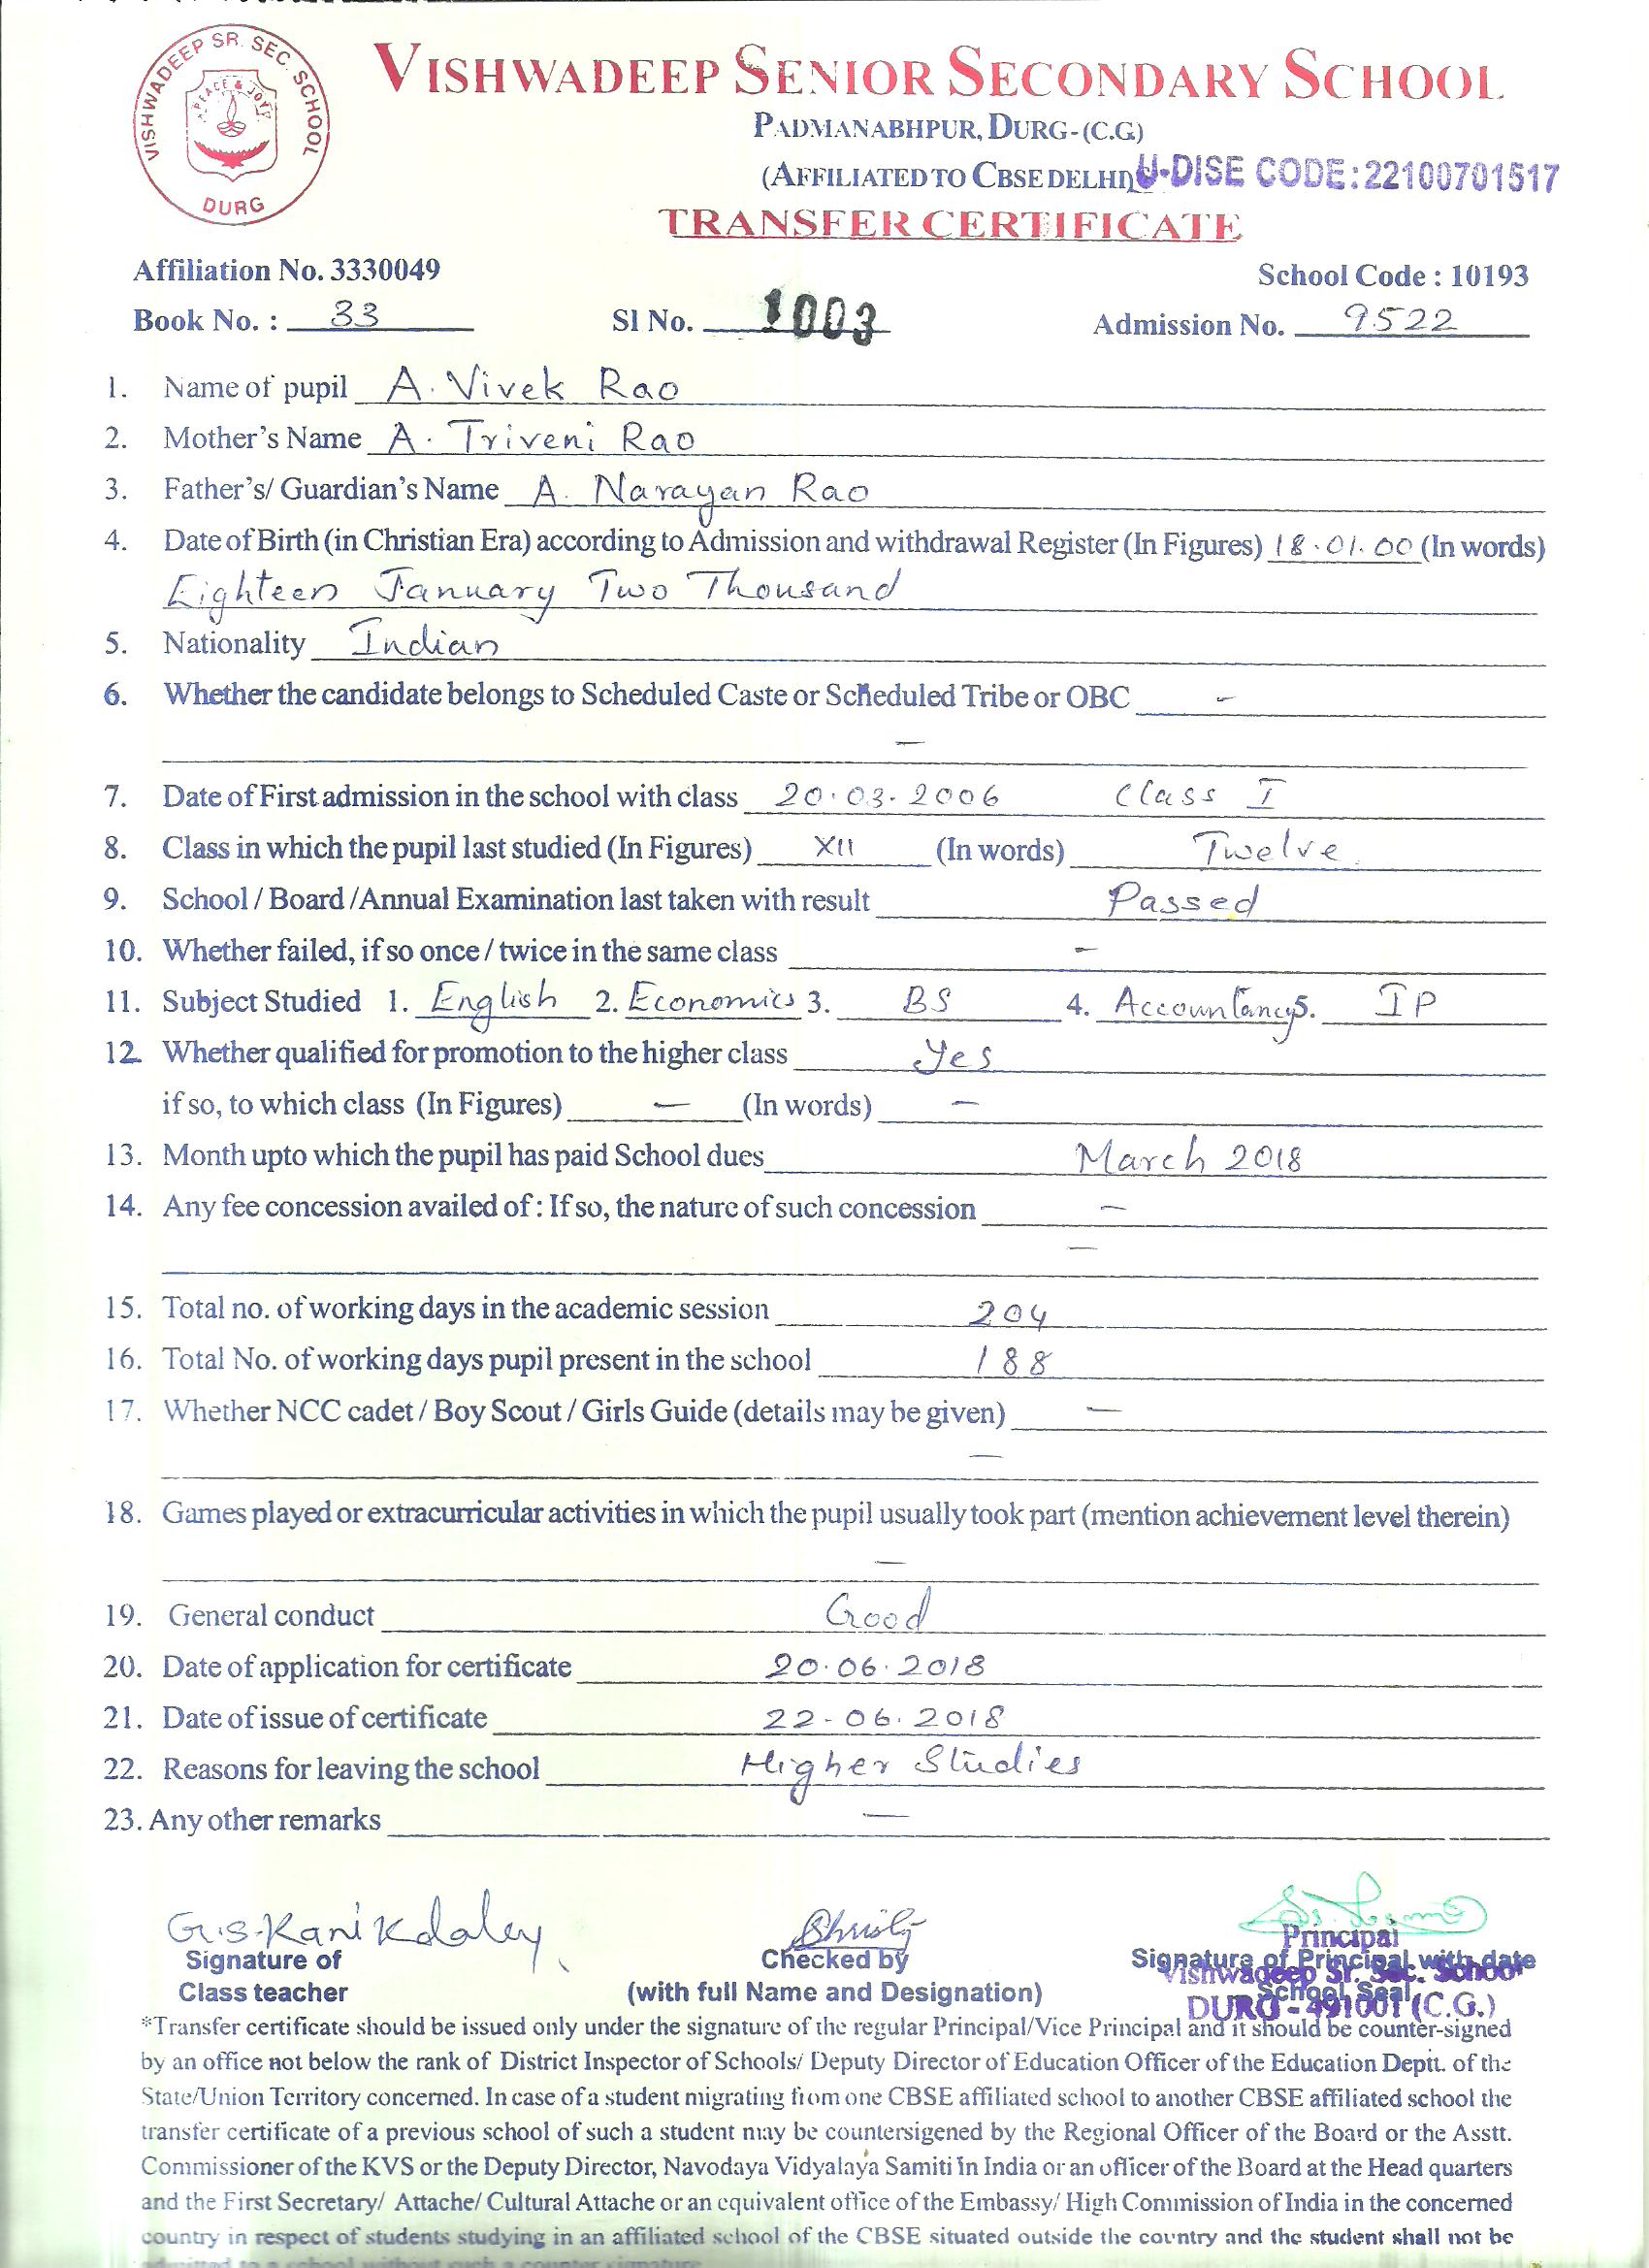 VISHWADEEP SR. SEC. SCHOOL
PEACE & JOY
DURG
VISHWADEEP SENIOR SECONDARY SCHOOL
PADMANABHPUR, DURG-(C.G)
(AFFILIATED TO CBSE DELHI) U-DISE CODE:22100701517
TRANSFER CERTIFICATE
Affiliation No. 3330049 School Code : 10193
Book No. : 33 Sl No. 1003 Admission No. 9522
1. Name of pupil A. Vivek Rao
2. Mother's Name A. Triveni Rao
3. Father's/ Guardian's Name A. Narayan Rao
4. Date of Birth (in Christian Era) according to Admission and withdrawal Register (In Figures) 18.01.00 (In words)
Eighteen January Two Thousand
5. Nationality Indian
6. Whether the candidate belongs to Scheduled Caste or Scheduled Tribe or OBC -
-
7. Date of First admission in the school with class 20.03.2006 Class I
8. Class in which the pupil last studied (In Figures) XII (In words) Twelve
9. School / Board /Annual Examination last taken with result Passed
10. Whether failed, if so once / twice in the same class -
11. Subject Studied 1. English 2. Economics 3. BS 4. Accountancy 5. IP
12. Whether qualified for promotion to the higher class Yes
if so, to which class (In Figures) - (In words) -
13. Month upto which the pupil has paid School dues March 2018
14. Any fee concession availed of : If so, the nature of such concession -
-
15. Total no. of working days in the academic session 204
16. Total No. of working days pupil present in the school 188
17. Whether NCC cadet / Boy Scout / Girls Guide (details may be given) -
-
18. Games played or extracurricular activities in which the pupil usually took part (mention achievement level therein)
-
19. General conduct Good
20. Date of application for certificate 20.06.2018
21. Date of issue of certificate 22-06.2018
22. Reasons for leaving the school Higher Studies
23. Any other remarks -
Principal
Signature of Checked by Signatura of Principal with date
Vishwadeep Sr. Sec. School
Class teacher (with full Name and Designation) School Seal
DURG - 491001 (C.G.)
*Transfer certificate should be issued only under the signature of the regular Principal/Vice Principal and it should be counter-signed
by an office not below the rank of District Inspector of Schools/ Deputy Director of Education Officer of the Education Deptt. of the
State/Union Territory concerned. In case of a student migrating from one CBSE affiliated school to another CBSE affiliated school the
transfer certificate of a previous school of such a student may be countersigened by the Regional Officer of the Board or the Asstt.
Commissioner of the KVS or the Deputy Director, Navodaya Vidyalaya Samiti in India or an officer of the Board at the Head quarters
and the First Secretary/ Attache/ Cultural Attache or an equivalent office of the Embassy/ High Commission of India in the concerned
country in respect of students studying in an affiliated school of the CBSE situated outside the country and the student shall not be
admitted to a school without such a counter signature